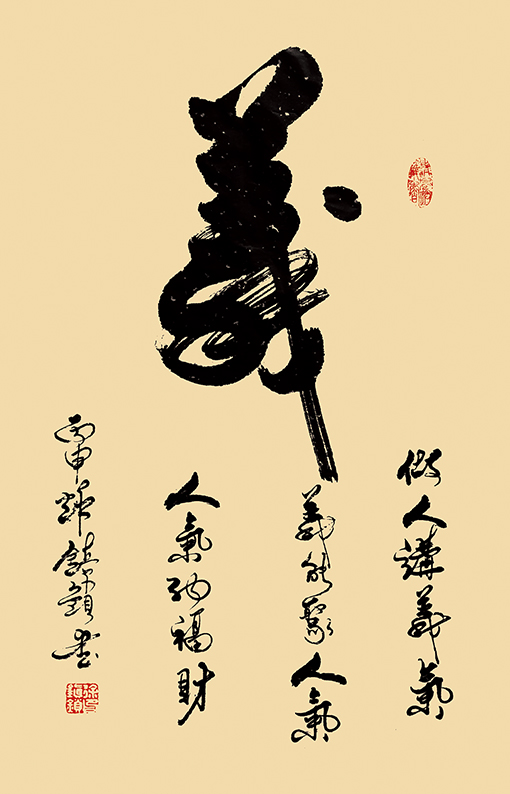 義
做人講義氣
義能聚人氣
人氣納福財
丙申 書